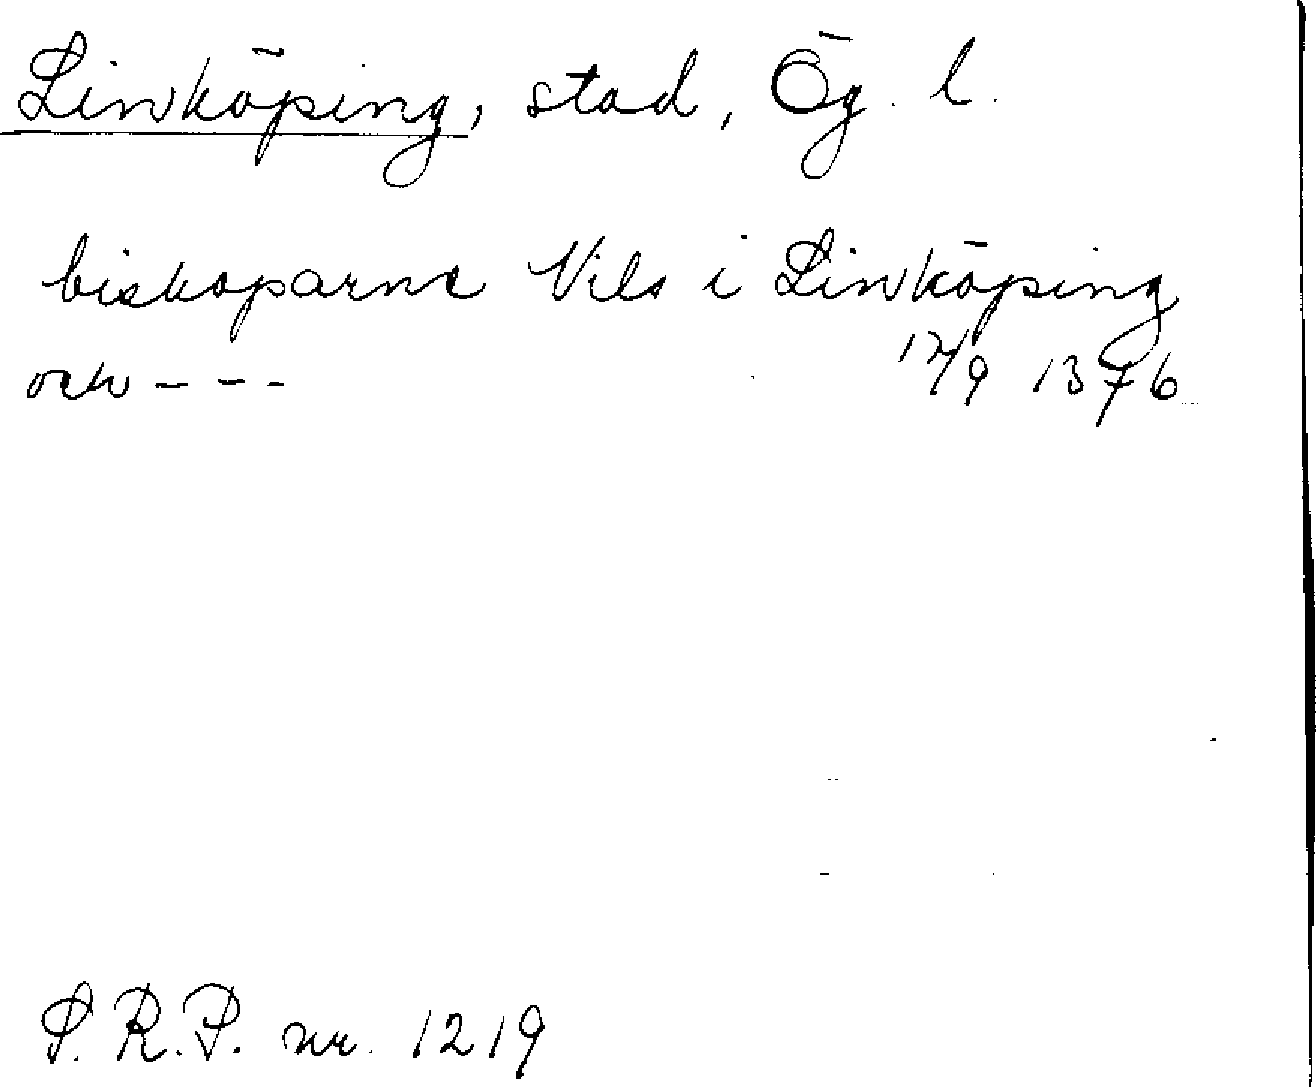 Linköping, stad, Ög. l.
biskoparne Nils i Linköping
och - - - 12/9 1376
S. R. P. nr. 1219